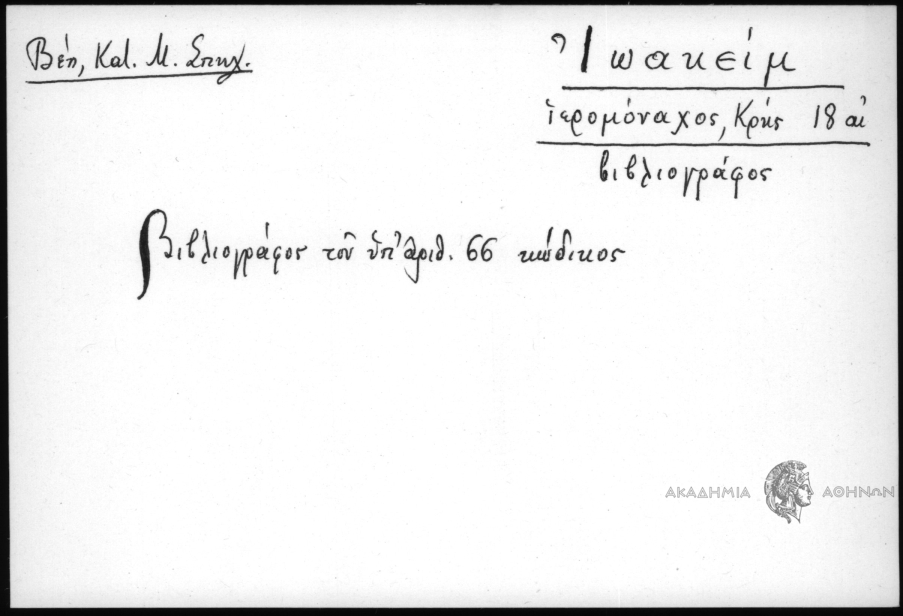 Βέη, Κατ. Μ. Σπηλ.
Ἰωακείμ
ἱερομόναχος, Κρής 18 αἰ
βιβλιογράφος
Βιβλιογράφος τοῦ ὑπ' ἀριθ. 66 κώδικος
ΑΚΑΔΗΜΙΑ ΑΘΗΝΩΝ